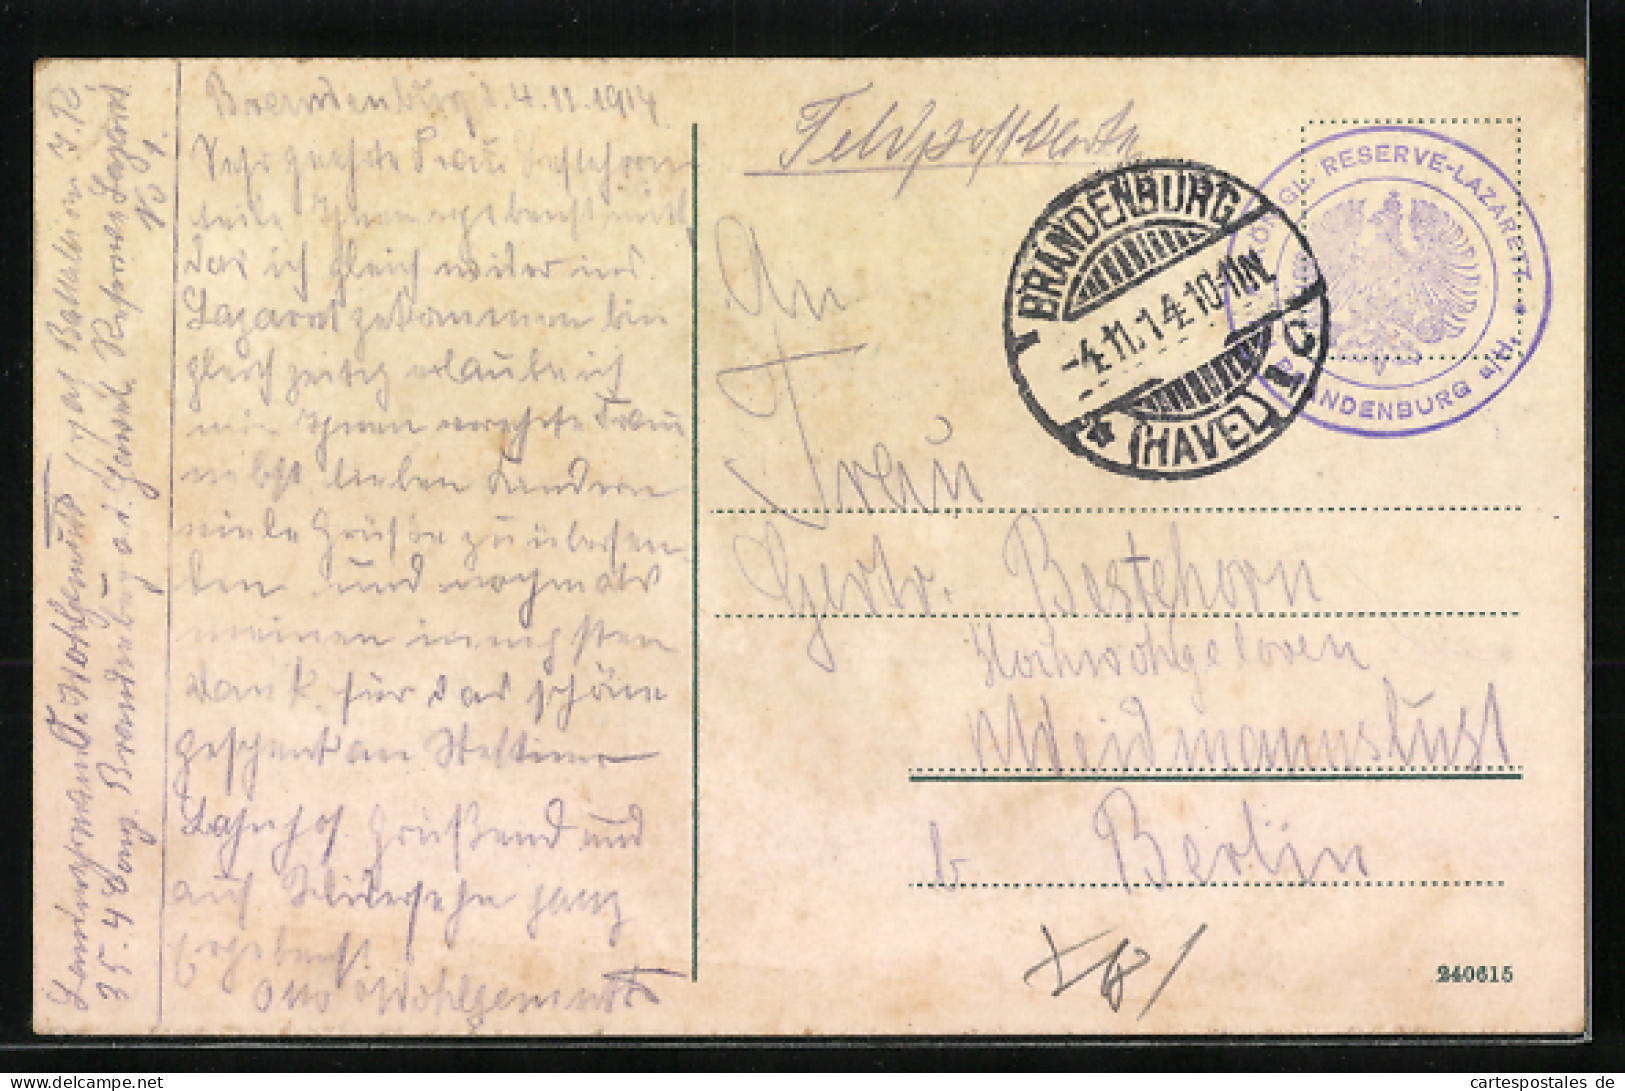 Brandenburg d. 4.11.1914
Sehr geehrte Frau Bestehorn
teile Ihnen ergebenst mitt
das ich gleich wider ins
Lazaret gekommen bin
gleichzeitig erlaube ich
mir Ihnen verehrte Frau
nebst lieben Kindern
viele Grüße zu übersen
den und nochmals
meinen innigsten
dank für das schöne
geschenk an Stettiner
Bahnhof. Grüßend und
auf Widersehn ganz
Ergebenst
Otto Wohlgemuth
Landwehrmann O. Wohlgemuth
35. 4 Comp. Brandenburg a. d. Havel Reserve Lazaret
No 1.
Feldpostkarte
An
Frau
Gertr. Bestehorn
Hochwohlgeboren
Waidmannslust
b. Berlin
BRANDENBURG
-4.11.14.10-11N.
* (HAVEL) 1 C
KÖNIGL. RESERVE-LAZARETT
BRANDENBURG a/H.
240615
cartespostales de